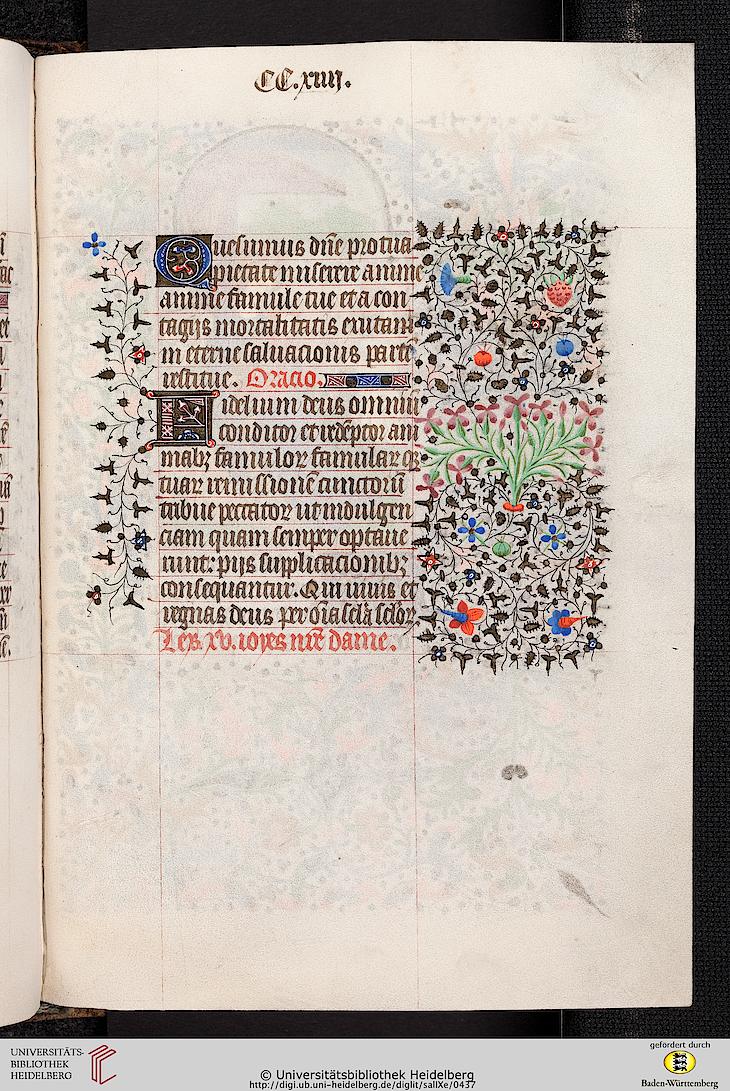 CC.xiiij.
Quesumus dñe pro tua
pietate miserere anime
anime famule tue et a con
tagijs mortalitatis exutam
in eterne saluacionis parte
restitue. Oracio.
Fidelium deus omniū
conditor et redēptor ani
mabꝫ famuloꝝ famulaꝝqꝫ
tuaꝝ remissionē cunctorū
tribue peccatoꝝ ut indulgen
ciam quam semper optaue
runt: pijs supplicacionibꝫ
consequantur. Qui viuis et
regnas deus per oīa sclā scloꝝ.
Les. xv. ioyes nr̄e dame.
UNIVERSITÄTS-
BIBLIOTHEK
HEIDELBERG
© Universitätsbibliothek Heidelberg
http://digi.ub.uni-heidelberg.de/diglit/salIXe/0437
gefördert durch
Baden-Württemberg